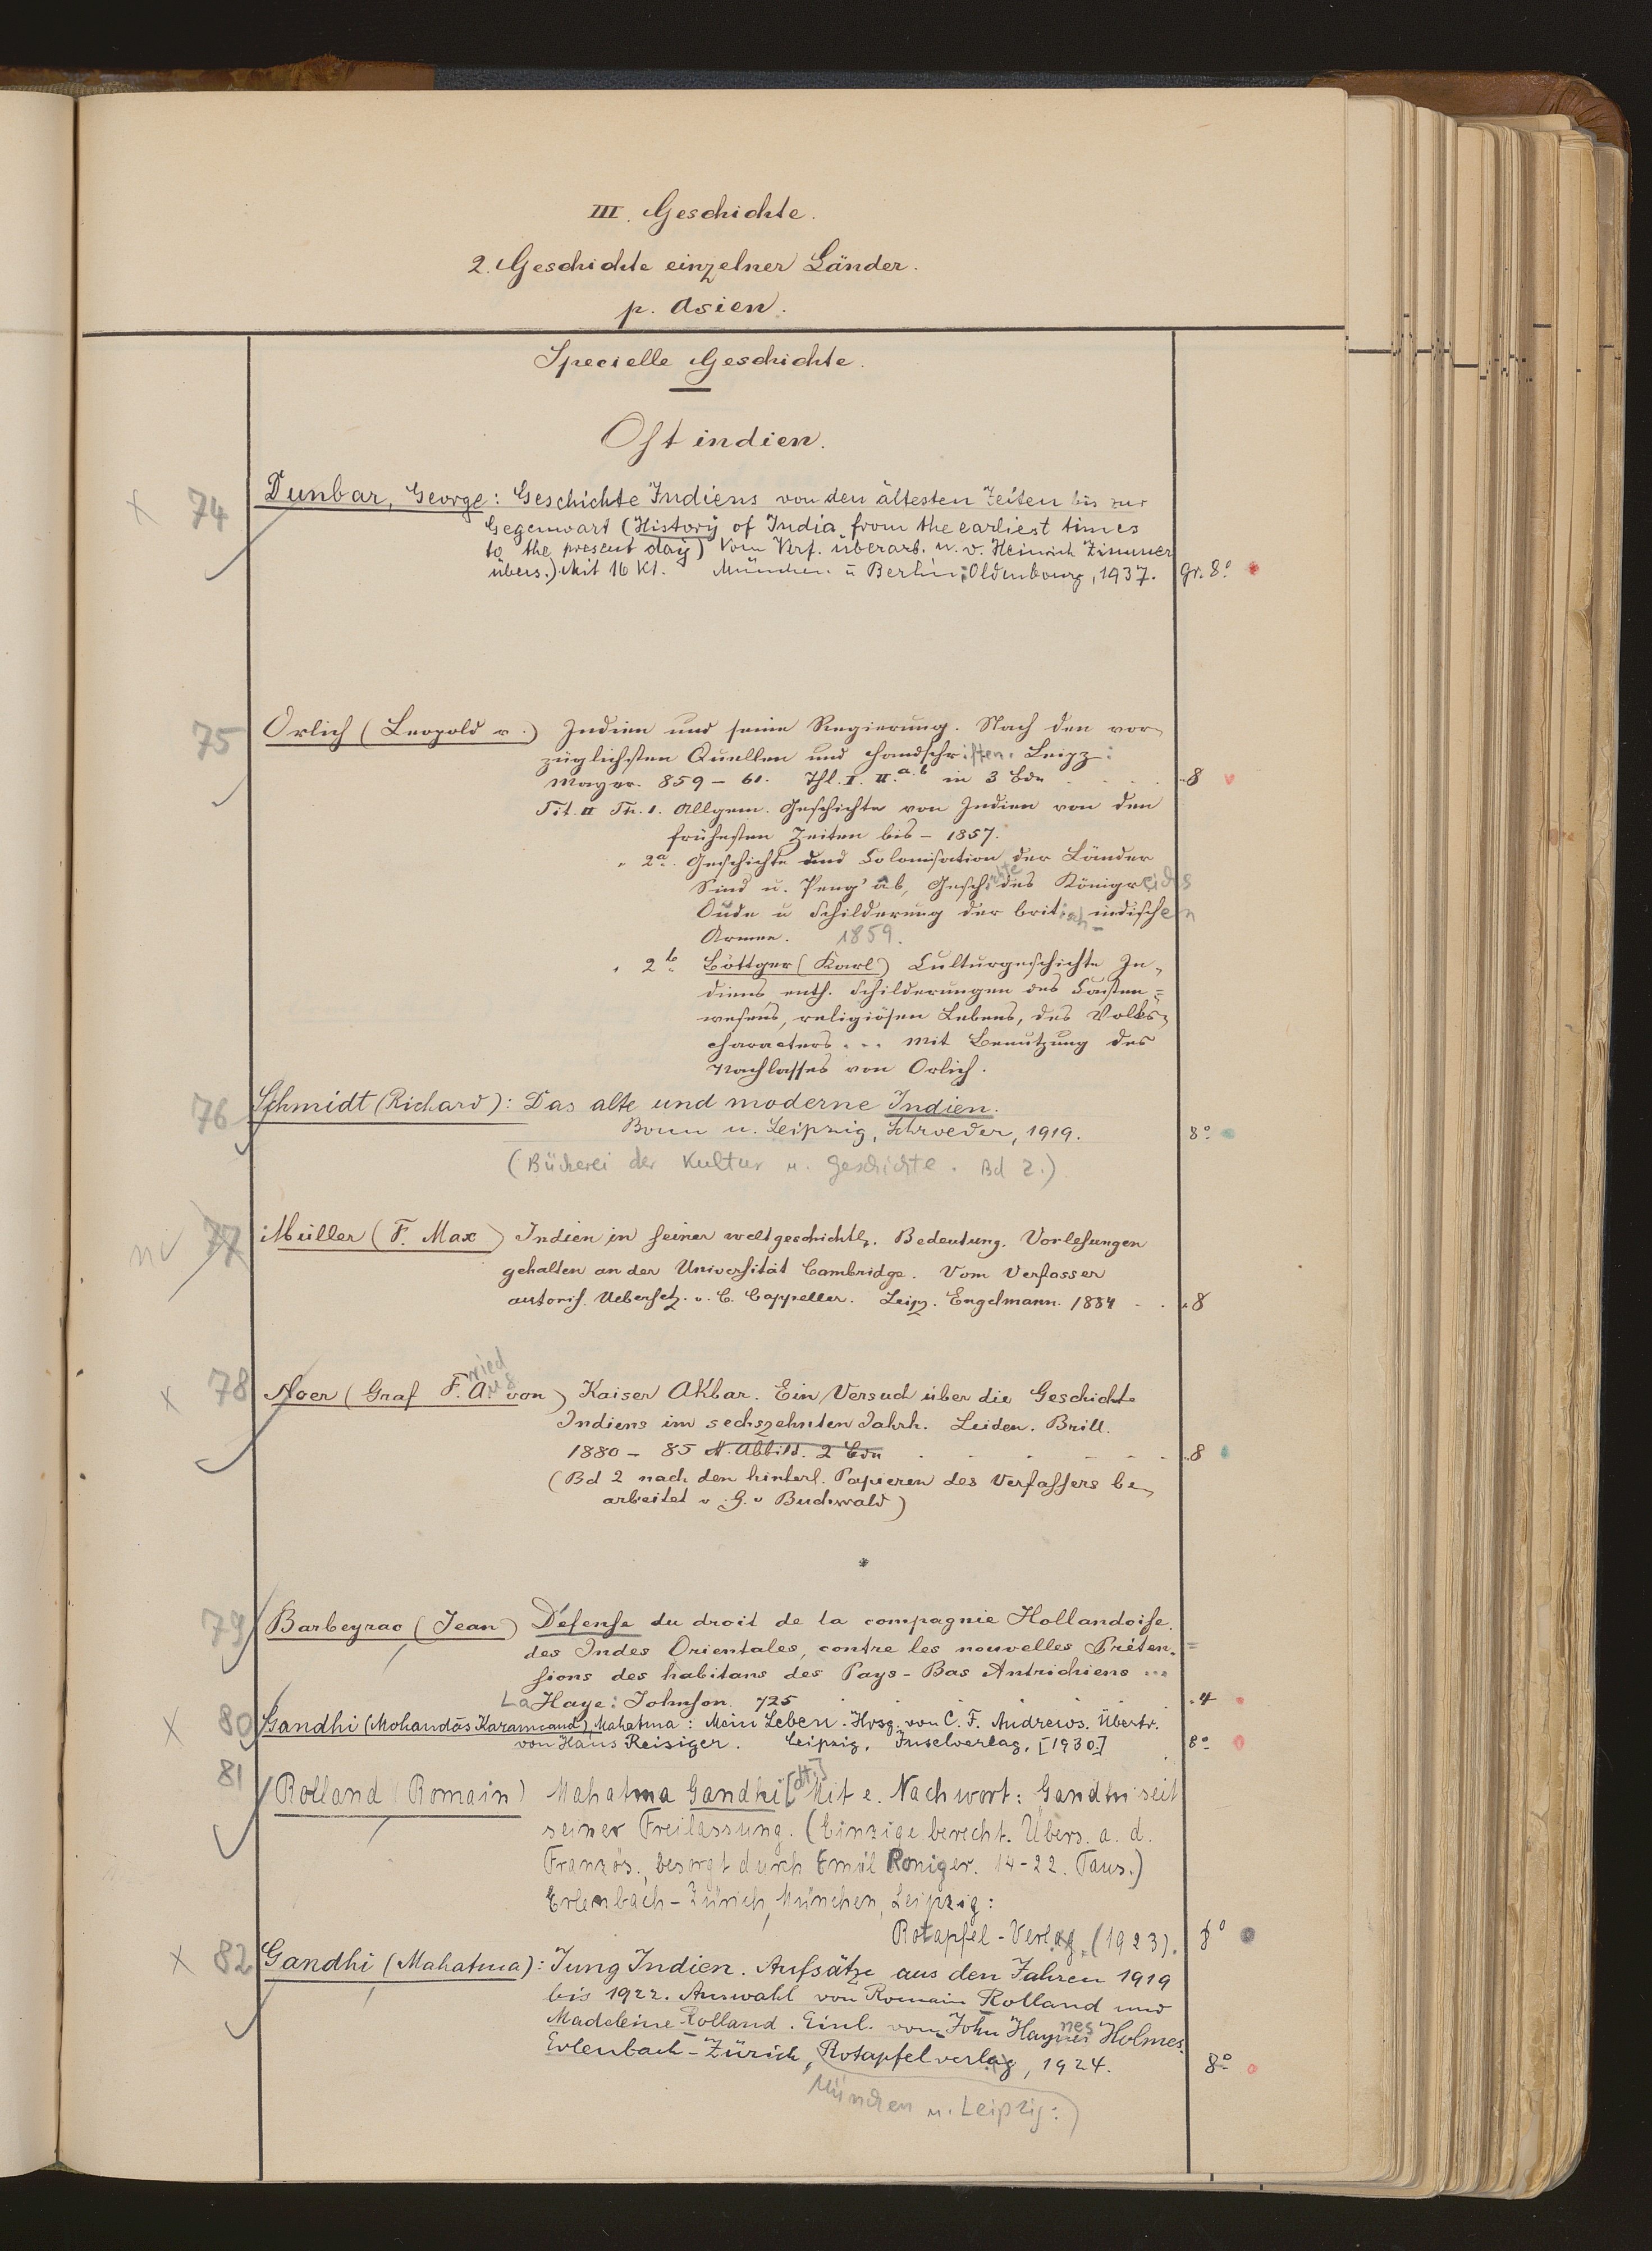 III. Geschichte.
2. Geschichte einzelner Länder.
p. Asien.
Specielle Geschichte.
Ostindien.
x 74 Dunbar, George: Geschichte Indiens von den ältesten Zeiten bis zur
Gegenwart (History of India from the earliest times
to the present day) Vom Verf. überarb. u. v. Heinrich Zimmer
übers.) Mit 16 Kt. München u Berlin: Oldenbourg, 1937. gr. 8°
75 Orlich (Leopold v.) Indien und seine Regierung. Nach den vor-
züglichsten Quellen und Handschriften. Leipz:
Mayer. 859 – 61. Thl. I. II. a. b in 3 Bdn . . . . 8
Tit. II Th. 1. Allgem. Geschichte von Indien von den
frühesten Zeiten bis – 1857.
" 2a. Geschichte und Colonisation der Länder
Sind u. Peng'âb, Geschichte des Königreichs
Oude u Schilderung der britisch-indischen
Armee. 1859.
" 2b. Böttger (Karl) Culturgeschichte In-
diens enth. Schilderungen des Casten=
wesens, religiösen Lebens, des Volks-
characters ... Mit Benutzung des
Nachlasses von Orlich.
76 Schmidt (Richard): Das alte und moderne Indien.
Bonn u. Leipzig, Schroeder, 1919. 8°
(Bücherei der Kultur u. Geschichte. Bd 2.)
77 Müller (F. Max) Indien in seiner weltgeschichtl. Bedeutung. Vorlesungen
gehalten an der Universität Cambridge. Vom Verfasser
autoris. Uebersetz. v. C. Cappeller. Leipz. Engelmann. 1884 . . 8
x 78 Noer (Graf Fried. Aug. von) Kaiser Akbar. Ein Versuch über die Geschichte
Indiens im sechszehnten Jahrh. Leiden. Brill.
1880 – 85 M. Abbild. 2 Bdn . . . . . . 8
(Bd 2 nach den hinterl. Papieren des Verfassers be-
arbeitet v. G. v Buchwald)
*
79 Barbeyrac (Jean) Défense du droit de la compagnie Hollandoise.
des Indes Orientales, contre les nouvelles Préten=
sions des habitans des Pays-Bas Autrichiens ...
La Haye: Johnson. 725 . . . . 4
x 80 Gandhi (Mohandās Karamcand), Mahatma: Mein Leben. Hrsg. von C. F. Andrews. Übertr.
von Hans Reisiger. Leipzig, Inselverlag, [1930.] 8°
81 Rolland (Romain) Mahatma Gandhi [dt.] Mit e. Nachwort: Gandhi seit
seiner Freilassung. (Einzige berecht. Übers. a. d.
Französ., besorgt durch Emil Roniger. 14-22. Taus.)
Erlenbach-Zürich, München, Leipzig:
Rotapfel-Verlag, (1923). 8°
x 82 Gandhi (Mahatma): Jung Indien. Aufsätze aus den Jahren 1919
bis 1922. Auswahl von Romain Rolland und
Madeleine Rolland. Einl. von John Haynes Holmes.
Erlenbach-Zürich, Rotapfelverlag, 1924. 8°
München u. Leipzig: